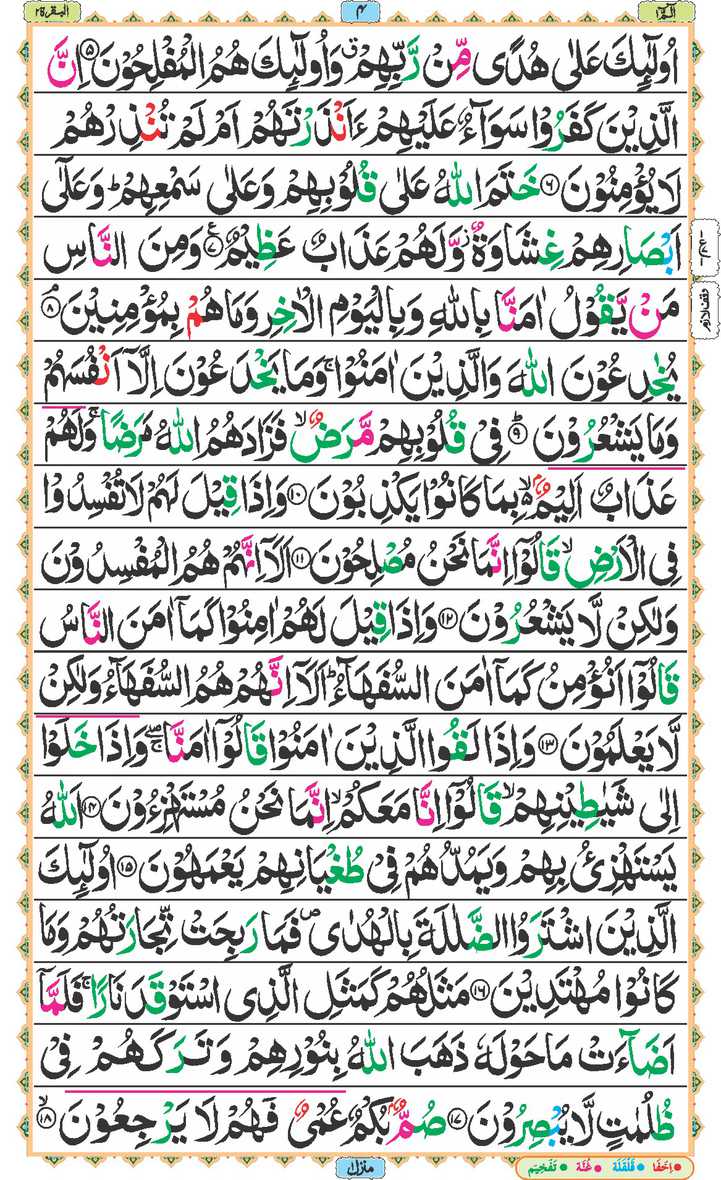 الٓمّٓ ۱ ۴ البقرة ۲
اُولٰٓئِكَ عَلٰى هُدًى مِّنْ رَّبِّهِمْ ۗ وَاُولٰٓئِكَ هُمُ الْمُفْلِحُوْنَ ۵ اِنَّ
الَّذِيْنَ كَفَرُوْا سَوَآءٌ عَلَيْهِمْ ءَاَنْذَرْتَهُمْ اَمْ لَمْ تُنْذِرْهُمْ
لَا يُؤْمِنُوْنَ ۶ خَتَمَ اللّٰهُ عَلٰى قُلُوْبِهِمْ وَعَلٰى سَمْعِهِمْ ؕ وَعَلٰٓى
اَبْصَارِهِمْ غِشَاوَةٌ ؗ وَّلَهُمْ عَذَابٌ عَظِيْمٌ ۷ وَمِنَ النَّاسِ
مَنْ يَّقُوْلُ اٰمَنَّا بِاللّٰهِ وَبِالْيَوْمِ الْاٰخِرِ وَمَا هُمْ بِمُؤْمِنِيْنَ ۸ۘ
وقف لازم
يُخٰدِعُوْنَ اللّٰهَ وَالَّذِيْنَ اٰمَنُوْا ۚ وَمَا يَخْدَعُوْنَ اِلَّآ اَنْفُسَهُمْ
وَمَا يَشْعُرُوْنَ ۹ؕ فِيْ قُلُوْبِهِمْ مَّرَضٌ ۙ فَزَادَهُمُ اللّٰهُ مَرَضًا ۚ وَلَهُمْ
عَذَابٌ اَلِيْمٌۢ ۙ بِمَا كَانُوْا يَكْذِبُوْنَ ۱۰ وَاِذَا قِيْلَ لَهُمْ لَا تُفْسِدُوْا
فِي الْاَرْضِ ۙ قَالُوْٓا اِنَّمَا نَحْنُ مُصْلِحُوْنَ ۱۱ اَلَآ اِنَّهُمْ هُمُ الْمُفْسِدُوْنَ
وَلٰكِنْ لَّا يَشْعُرُوْنَ ۱۲ وَاِذَا قِيْلَ لَهُمْ اٰمِنُوْا كَمَآ اٰمَنَ النَّاسُ
قَالُوْٓا اَنُؤْمِنُ كَمَآ اٰمَنَ السُّفَهَآءُ ؕ اَلَآ اِنَّهُمْ هُمُ السُّفَهَآءُ وَلٰكِنْ
لَّا يَعْلَمُوْنَ ۱۳ وَاِذَا لَقُوا الَّذِيْنَ اٰمَنُوْا قَالُوْٓا اٰمَنَّا ۚۖ وَاِذَا خَلَوْا
اِلٰى شَيٰطِيْنِهِمْ ۙ قَالُوْٓا اِنَّا مَعَكُمْ ۙ اِنَّمَا نَحْنُ مُسْتَهْزِءُوْنَ ۱۴ اَللّٰهُ
يَسْتَهْزِئُ بِهِمْ وَيَمُدُّهُمْ فِيْ طُغْيَانِهِمْ يَعْمَهُوْنَ ۱۵ اُولٰٓئِكَ
الَّذِيْنَ اشْتَرَوُا الضَّلٰلَةَ بِالْهُدٰى ۪ فَمَا رَبِحَتْ تِّجَارَتُهُمْ وَمَا
كَانُوْا مُهْتَدِيْنَ ۱۶ مَثَلُهُمْ كَمَثَلِ الَّذِى اسْتَوْقَدَ نَارًا ۚ فَلَمَّآ
اَضَآءَتْ مَا حَوْلَهٗ ذَهَبَ اللّٰهُ بِنُوْرِهِمْ وَتَرَكَهُمْ فِيْ
ظُلُمٰتٍ لَّا يُبْصِرُوْنَ ۱۷ صُمٌّۢ بُكْمٌ عُمْيٌ فَهُمْ لَا يَرْجِعُوْنَ ۱۸ۙ
منزل ۱
اِخْفَا قَلْقَلَة غُنَّة تَفْخِيْم